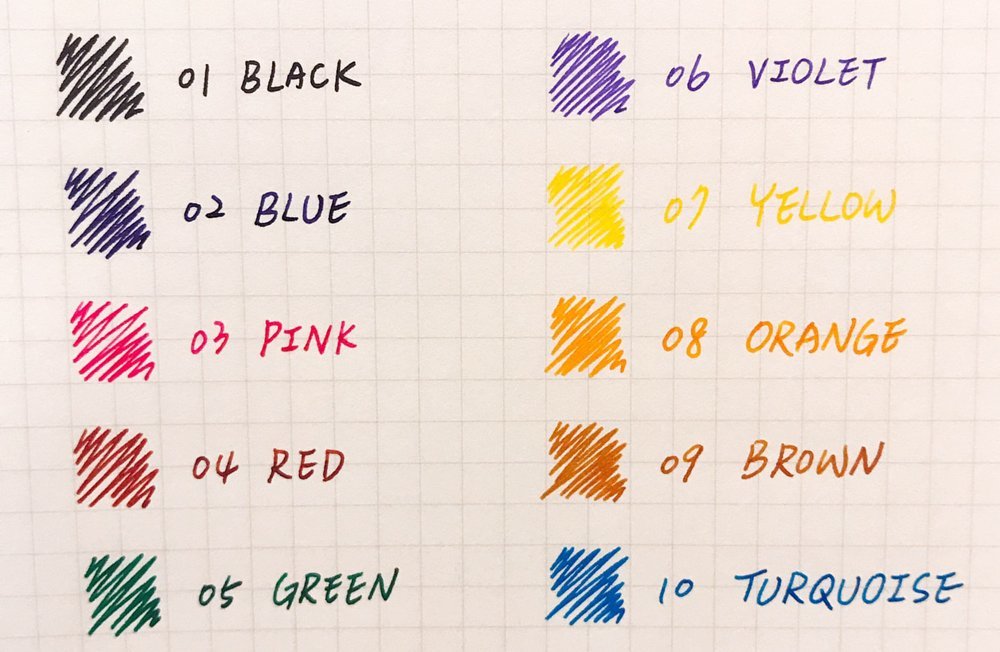 01 BLACK
02 BLUE
03 PINK
04 RED
05 GREEN
06 VIOLET
07 YELLOW
08 ORANGE
09 BROWN
10 TURQUOISE